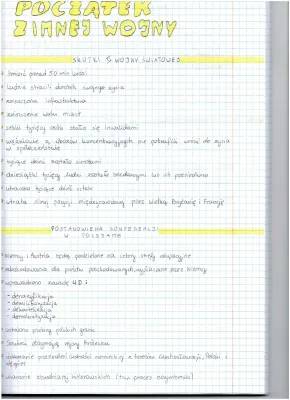 POCZĄTEK
ZIMNEJ WOJNY
SKUTKI II WOJNY ŚWIATOWEJ
śmierć ponad 50 mln ludzi
ludzie stracili dorobek swojego życia
zniszczona infrastruktura
zniszczenie wielu miast
setki tysięcy osób stało się inwalidami
więźniowie z obozów koncentracyjnych nie potrafili wrócić do życia
w społeczeństwie
tysiące dzieci zostało sierotami
dziesiątki tysięcy ludzi zostało
utracono tysiące dzieł sztuki
utrata silnej pozycji międzynarodowej przez Wielką Brytanię i Francję
POSTANOWIENIA KONFERENCJI
W POCZDAMIE
Niemcy i Austria będą podzielone na cztery strefy okupacyjne
odszkodowania dla państw poszkodowanych, wypłacane przez Niemcy
wprowadzono zasadę 4D:
- denazyfikacja
- demilitaryzacja
- dekartelizacja
- demokratyzacja
ustalono przebieg polskich granic
Sowieci otrzymają rejony Królewca
ludności niemieckiej z terenów Czechosłowacji, Polski i
Węgier
ukaranie zbrodniarzy hitlerowskich (tzw. proces norymberski)